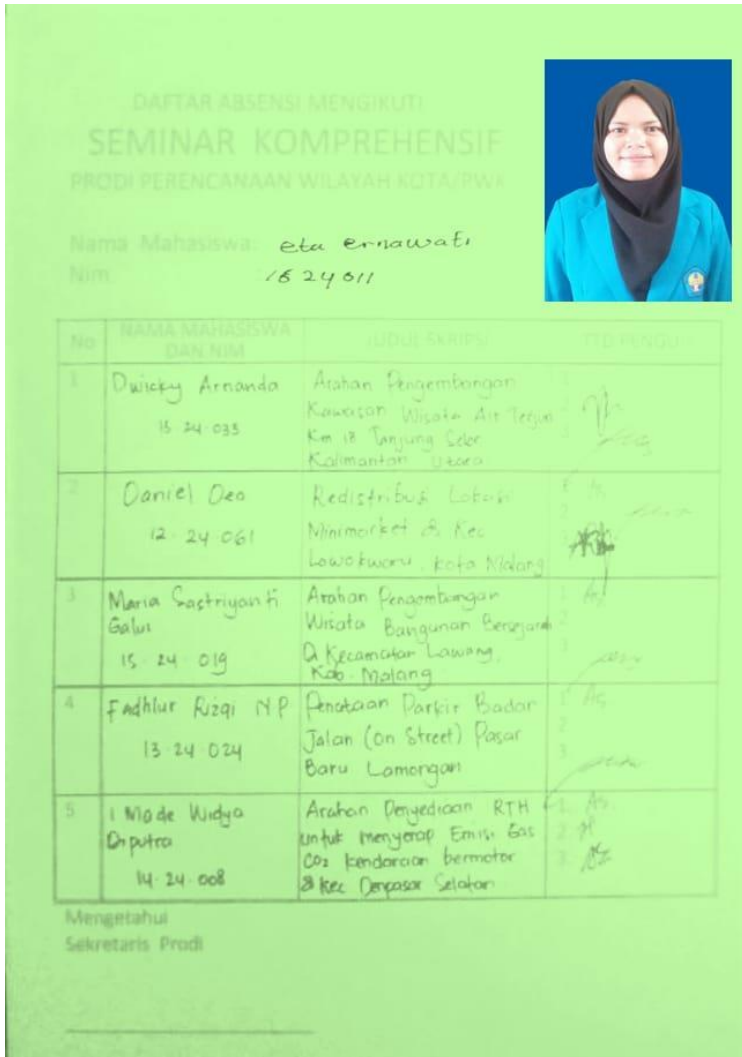 DAFTAR ABSENSI MENGIKUTI
SEMINAR KOMPREHENSIF
PRODI PERENCANAAN WILAYAH KOTA/PWK
Nama Mahasiswa: eta ernawati
Nim: 1624011
No NAMA MAHASISWA DAN NIM JUDUL SKRIPSI TTD PENGUJI
1 Dwicky Arnanda
15.24.033
Arahan Pengembangan
Kawasan Wisata Air Terjun
Km 18 Tanjung Selor
Kalimantan Utara
2 Daniel Deo
12.24.061
Redistribusi Lokasi
Minimarket di Kec
Lowokwaru, Kota Malang
3 Maria Sastriyanti
Galus
15.24.019
Arahan Pengembangan
Wisata Bangunan Bersejarah
Di Kecamatan Lawang,
Kab. Malang
4 Fadhlur Rizqi N.P
13.24.024
Penataan Parkir Badan
Jalan (On Street) Pasar
Baru Lamongan
5 I Made Widya
Diputra
14.24.008
Arahan Penyediaan RTH
untuk menyerap Emisi Gas
CO2 kendaraan bermotor
di Kec Denpasar Selatan
Mengetahui
Sekretaris Prodi